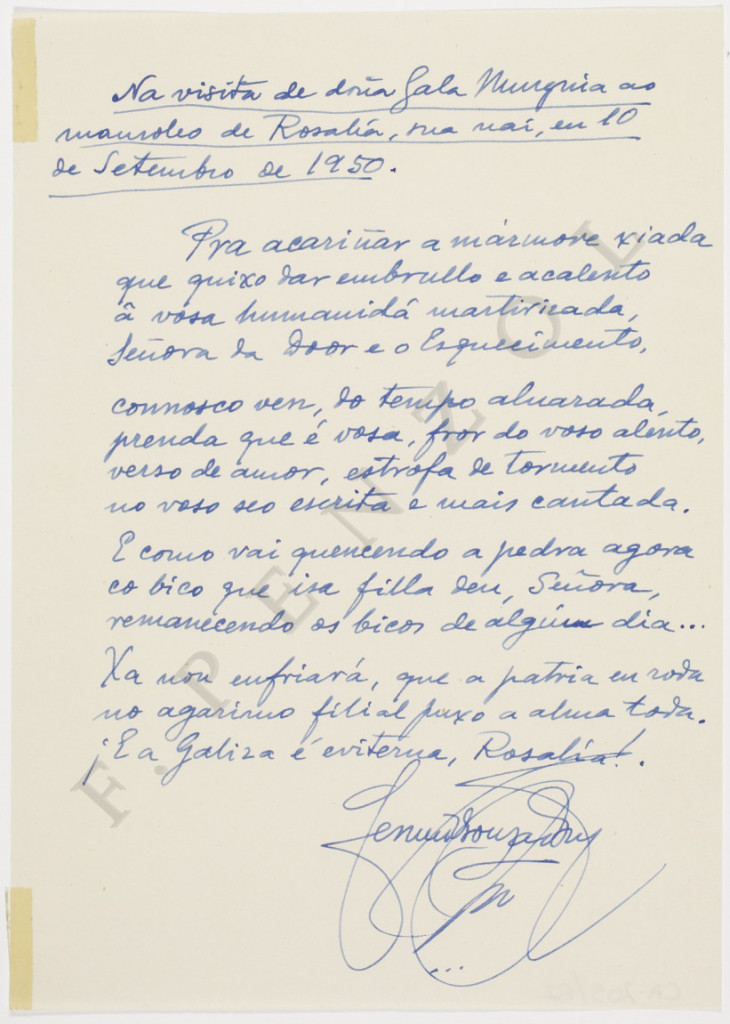 Na visita de doña Gala Murguia ao
mausoleo de Rosalía, sua nai, en 10
de Setembro de 1950.
Pra acariñar a mármore xiada
que quixo dar embrullo e acalento
â vosa humanidá martirizada,
Señora da Door e o Esquecimento,
connosco ven, do tempo alucada,
prenda que é vosa, fror do voso alento,
verso de amor, estrofa de tormento
no voso seo escrita e mais cantada.
E como vai quencendo a pedra agora
co bico que isa filla deu, Señora,
remanecendo os bicos de algún dia...
Xa non enfriará, que a patria en roda
no agarimo filial puxo a alma toda.
¡E a Galiza é eviterna, Rosalía!.
...
F. PENZOL